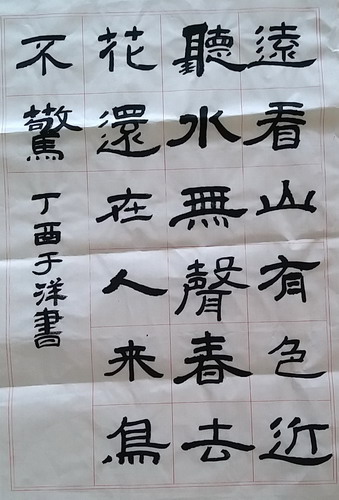 遠看山有色近
聽水無聲春去
花還在人来鳥
不驚
丁酉于洋書